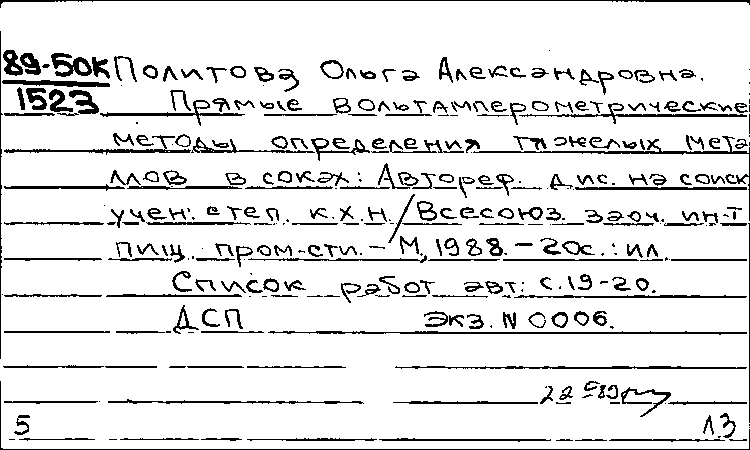 89-50к Политова Ольга Александровна.
1523 Прямые вольтамперометрические
методы определения тяжелых мета
ллов в соках: Автореф. дис. на соиск
учен. степ. к.х.н. / Всесоюз. заоч. ин-т
пищ. пром-сти. - М, 1988. - 20с.: ил
Список работ авт: с. 19-20.
ДСП экз. N 0006.
5 13